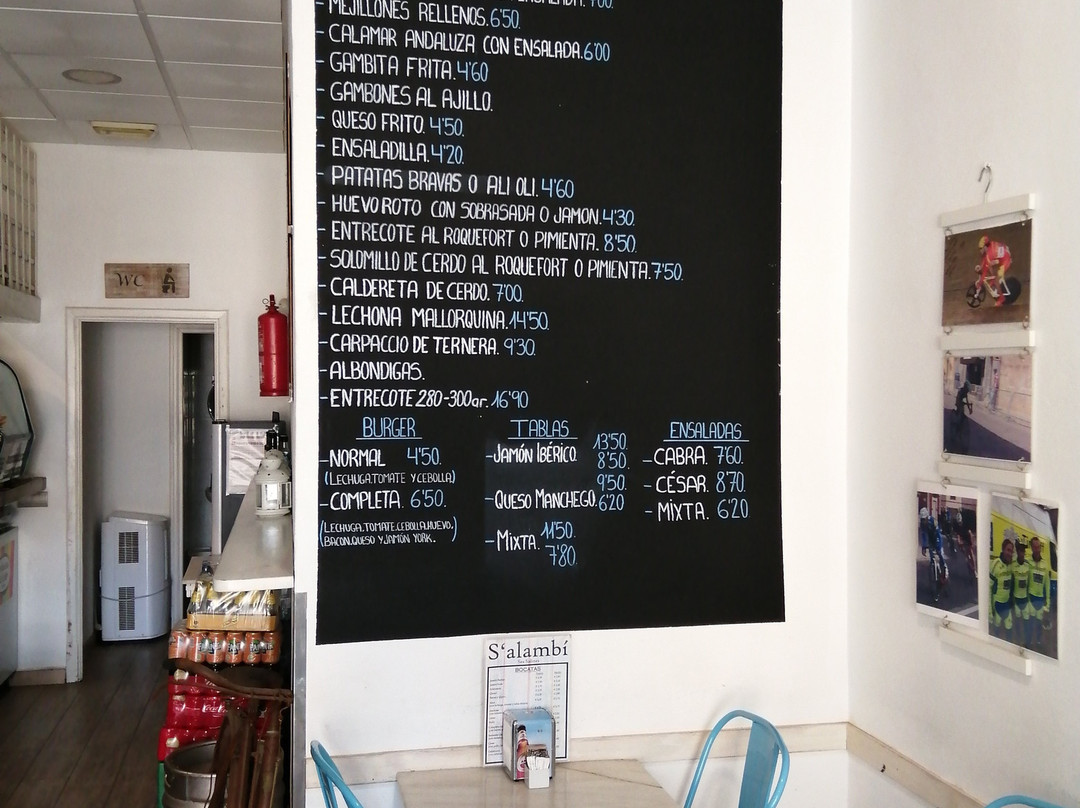 ENSALADA. 7'00.
- MEJILLONES RELLENOS. 6'50.
- CALAMAR ANDALUZA CON ENSALADA. 6'00
- GAMBITA FRITA. 4'60
- GAMBONES AL AJILLO.
- QUESO FRITO. 4'50.
- ENSALADILLA. 4'20.
- PATATAS BRAVAS O ALI OLI. 4'60
- HUEVO ROTO CON SOBRASADA O JAMON. 4'30.
- ENTRECOTE AL ROQUEFORT O PIMIENTA. 8'50.
- SOLOMILLO DE CERDO AL ROQUEFORT O PIMIENTA. 7'50.
- CALDERETA DE CERDO. 7'00.
- LECHONA MALLORQUINA. 14'50.
- CARPACCIO DE TERNERA. 9'30.
- ALBONDIGAS.
- ENTRECOTE 280-300gr. 16'90
BURGER
- NORMAL 4'50.
(LECHUGA.TOMATE Y CEBOLLA)
- COMPLETA. 6'50.
(LECHUGA.TOMATE.CEBOLLA.HUEVO.
BACON.QUESO Y JAMÓN YORK.)
TABLAS
- JAMÓN IBÉRICO. 13'50.
8'50.
- QUESO MANCHEGO. 9'50.
6'20
- MIXTA. 11'50.
7'80.
ENSALADAS
- CABRA. 7'60.
- CÉSAR. 8'70.
- MIXTA. 6'20
WC
S'alambí
BOCATAS